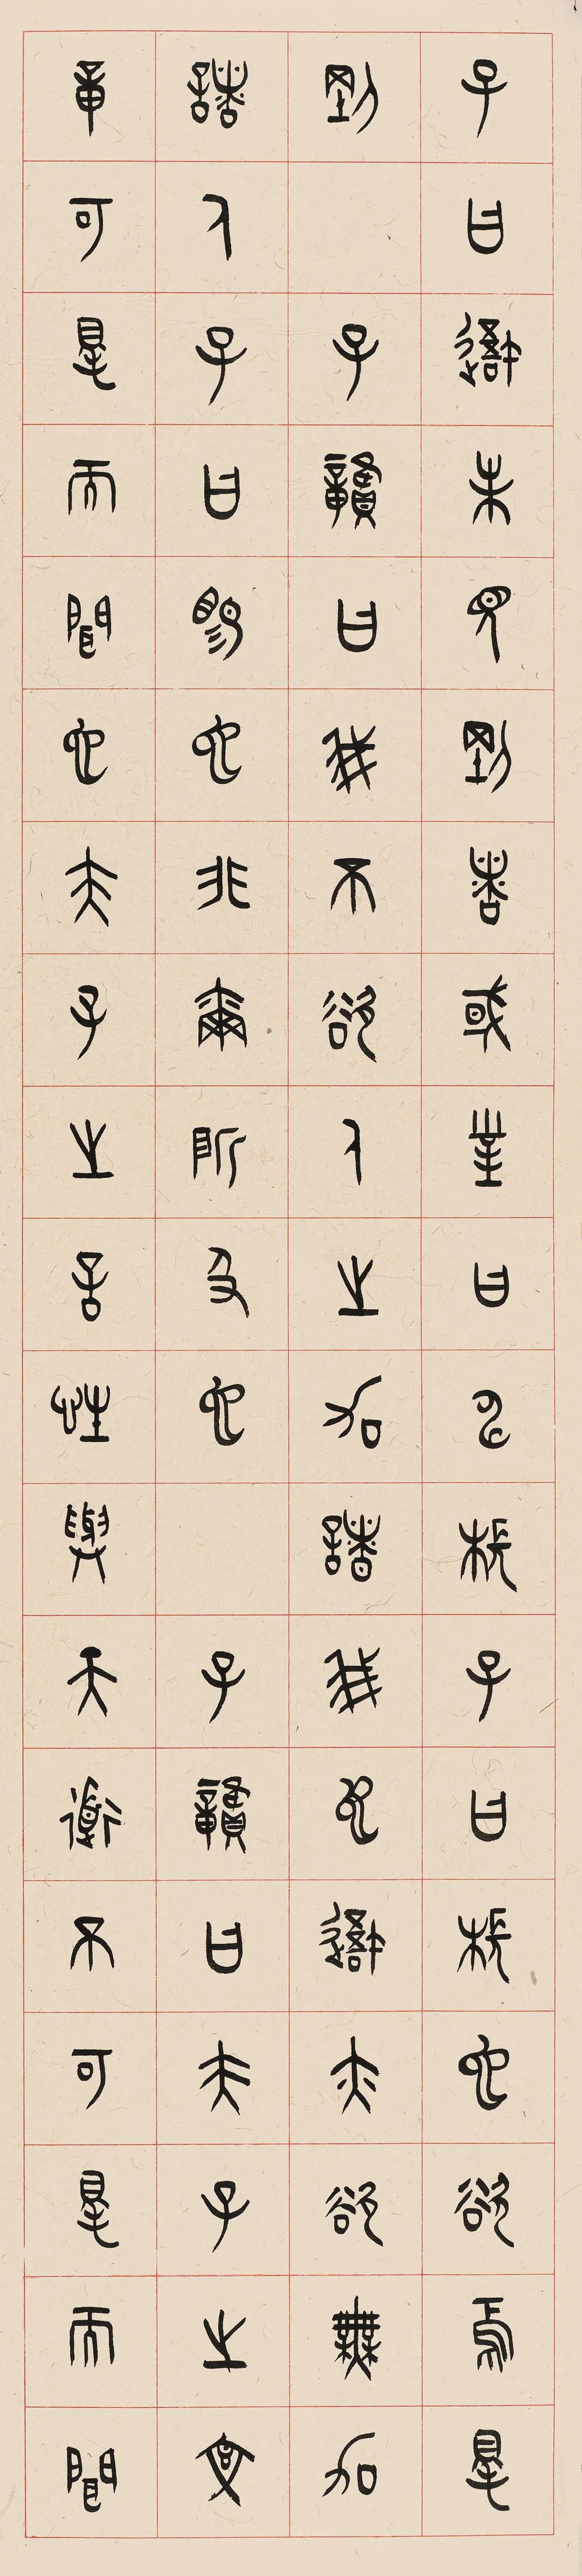 子曰吾未見剛者或對曰申棖子曰棖也欲焉得
剛 子贛曰我不欲人之加諸我也吾亦欲無加
諸人子曰賜也非爾所及也 子贛曰夫子之文
章可得而聞也夫子之言性與天道不可得而聞